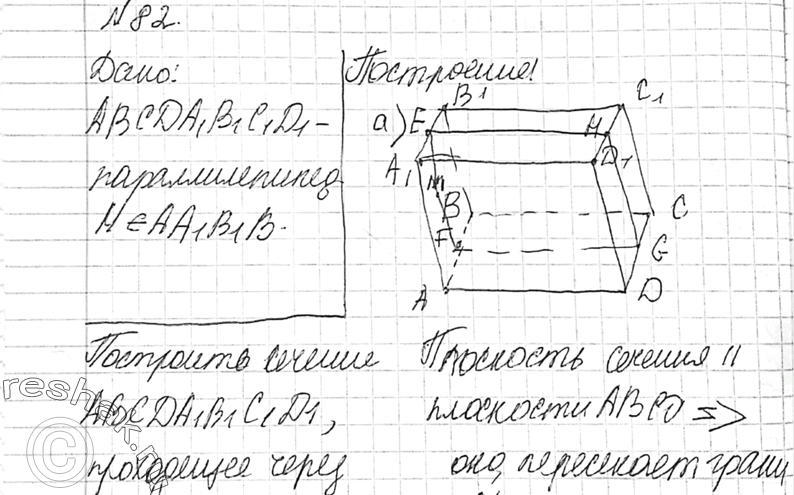 №82.
Дано:
ABCDA₁B₁C₁D₁ –
параллилепипед
M ∈ AA₁B₁B.
Построение!
а)
B₁
C₁
E
H
A₁
D₁
M
B
C
F
G
A
D
Построить сечение
ABCDA₁B₁C₁D₁,
проходящее через
Плоскость сечения ||
плоскости ABCD =>
она пересекает грани
reshak.ru
©